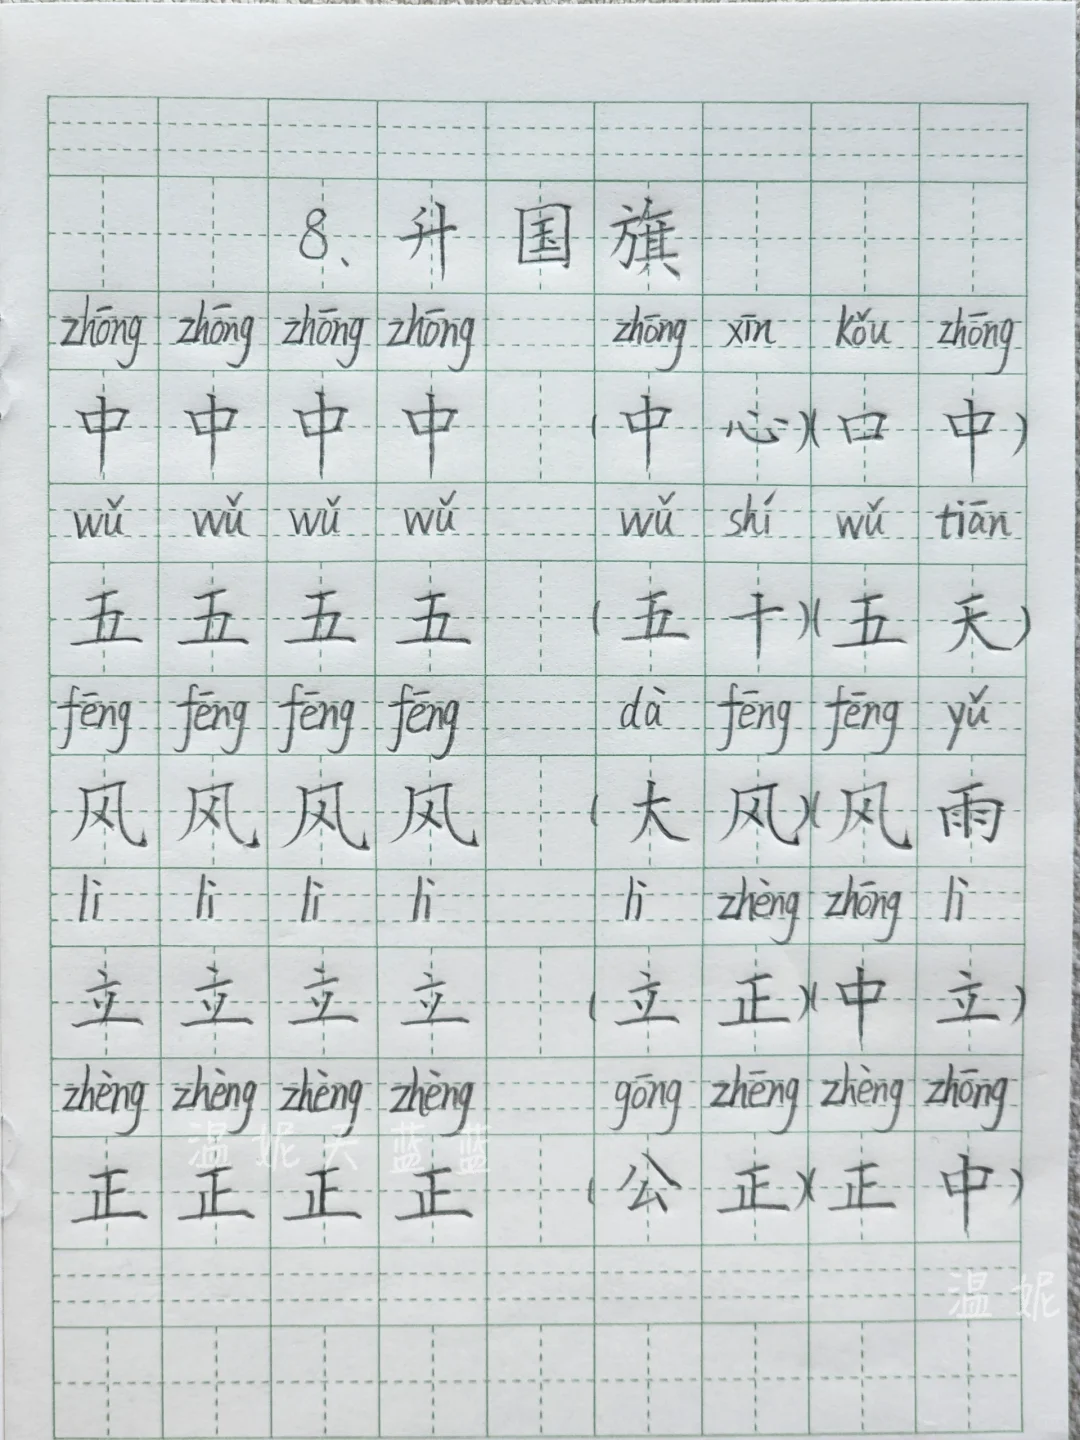 8、升国旗
zhōng zhōng zhōng zhōng zhōng xīn kǒu zhōng
中 中 中 中 (中 心)(口 中)
wǔ wǔ wǔ wǔ wǔ shí wǔ tiān
五 五 五 五 (五 十)(五 天)
fēng fēng fēng fēng dà fēng fēng yǔ
风 风 风 风 (大 风)(风 雨
lì lì lì lì lì zhèng zhōng lì
立 立 立 立 (立 正)(中 立)
zhèng zhèng zhèng zhèng gōng zhēng zhèng zhōng
温妮天蓝蓝
正 正 正 正 (公 正)(正 中)
温妮